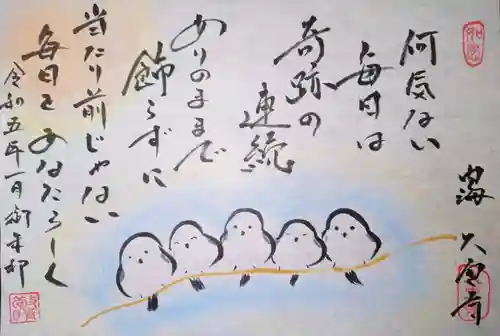 何気ない
毎日は
奇跡の
連続
ありのままで
飾らずに
当たり前じゃない
毎日をあなたらしく
令和五年一月御朱印
大宝寺